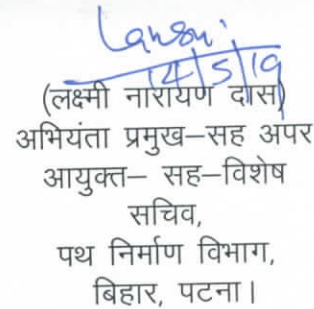 14/5/19
(लक्ष्मी नारायण दास)
अभियंता प्रमुख–सह अपर
आयुक्त– सह–विशेष
सचिव,
पथ निर्माण विभाग,
बिहार, पटना।